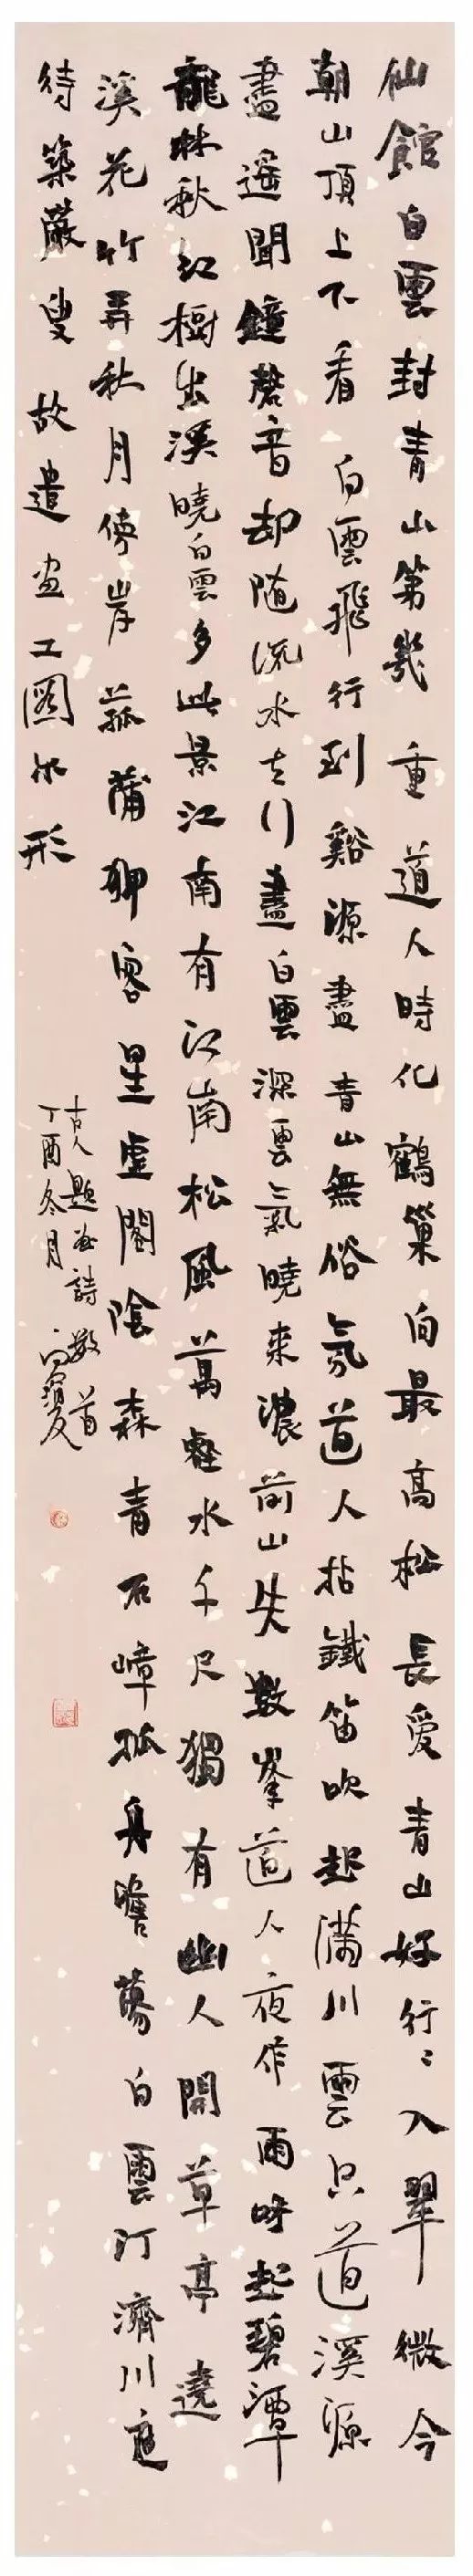 仙館白雲封青山第幾重道人時化鶴巢向最高松長愛青山好行〻入翠微今
朝山頂上下看白雲飛行到谿源盡青山無俗氛道人拈鐵笛吹起滿川雲只道溪源
盡遥聞鐘磬音却随流水去行盡白雲深雲氣曉来濃前山失數峯道人夜作雨呼起碧潭
龍林秋紅樹出溪曉白雲多此景江南有江南松風萬壑水千尺獨有幽人開草亭遶
溪花竹弄秋月傍岸菰蒲卧客星虚閣陰森青石嶂孤舟澹蕩白雲汀濟川
待築巖叟故遣畫工圖尔形
古人題畫詩數首
丁酉冬月